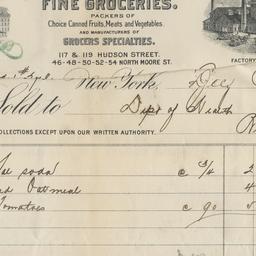 FINE GROCERIES.
PACKERS OF
Choice Canned Fruits, Meats and Vegetables.
AND MANUFACTURERS OF
GROCERS SPECIALTIES.
117 & 119 HUDSON STREET.
46-48-50-52-54 NORTH MOORE ST.
FACTORY
New York,
Sold to Dept of Health
COLLECTIONS EXCEPT UPON OUR WRITTEN AUTHORITY.
Sal soda c 3/4 2
Oatmeal 4
Tomatoes c 90 5